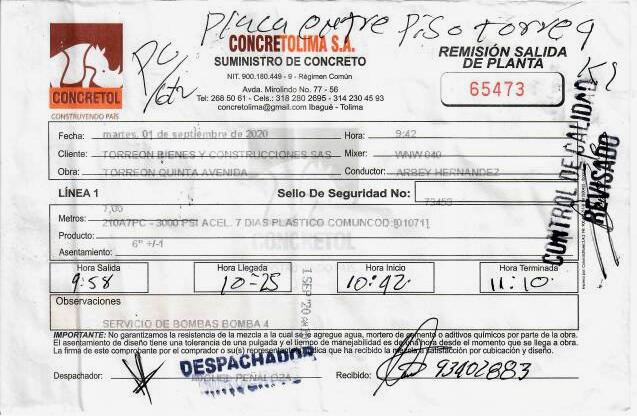 Placa entre Piso torre 9
CONCRETOL
CONSTRUYENDO PAÍS
CONCRETOLIMA S.A.
SUMINISTRO DE CONCRETO
NIT. 900.180.449 - 9 - Régimen Común
Avda. Mirolindo No. 77 - 56
Tel: 268 50 61 - Cels.: 318 280 2695 - 314 230 45 93
concretolima@gmail.com Ibagué - Tolima
REMISIÓN SALIDA
DE PLANTA
65473
Fecha: martes, 01 de septiembre de 2020 Hora: 9:42
Cliente: TORREON BIENES Y CONSTRUCCIONES SAS Mixer: WNW 040
Obra: TORREON QUINTA AVENIDA Conductor: ARBEY HERNANDEZ
CONTROL DE CALIDAD
REVISADO
LÍNEA 1 Sello De Seguridad No: 73453
Metros: 7,00
Producto: 210A7PC - 3000 PSI ACEL. 7 DIAS PLASTICO COMUNCOD:[01071]
Asentamiento: 6" +/-1
Hora Salida Hora Llegada Hora Inicio Hora Terminada
9:58 10-25 10:42 11:10
1 SEP '20
Observaciones
SERVICIO DE BOMBAS BOMBA 4
IMPORTANTE: No garantizamos la resistencia de la mezcla a la cual se le agregue agua, mortero de cemento o aditivos químicos por parte de la obra.
El asentamiento de diseño tiene una tolerancia de una pulgada y el tiempo de manejabilidad es de una hora desde el momento que se llega a obra.
La firma de este comprobante por el comprador o su(s) representante indica que ha recibido la mezcla a satisfacción por cubicación y diseño.
DESPACHADOR
Despachador: MIGUEL PEÑALOZA Recibido: 93402883